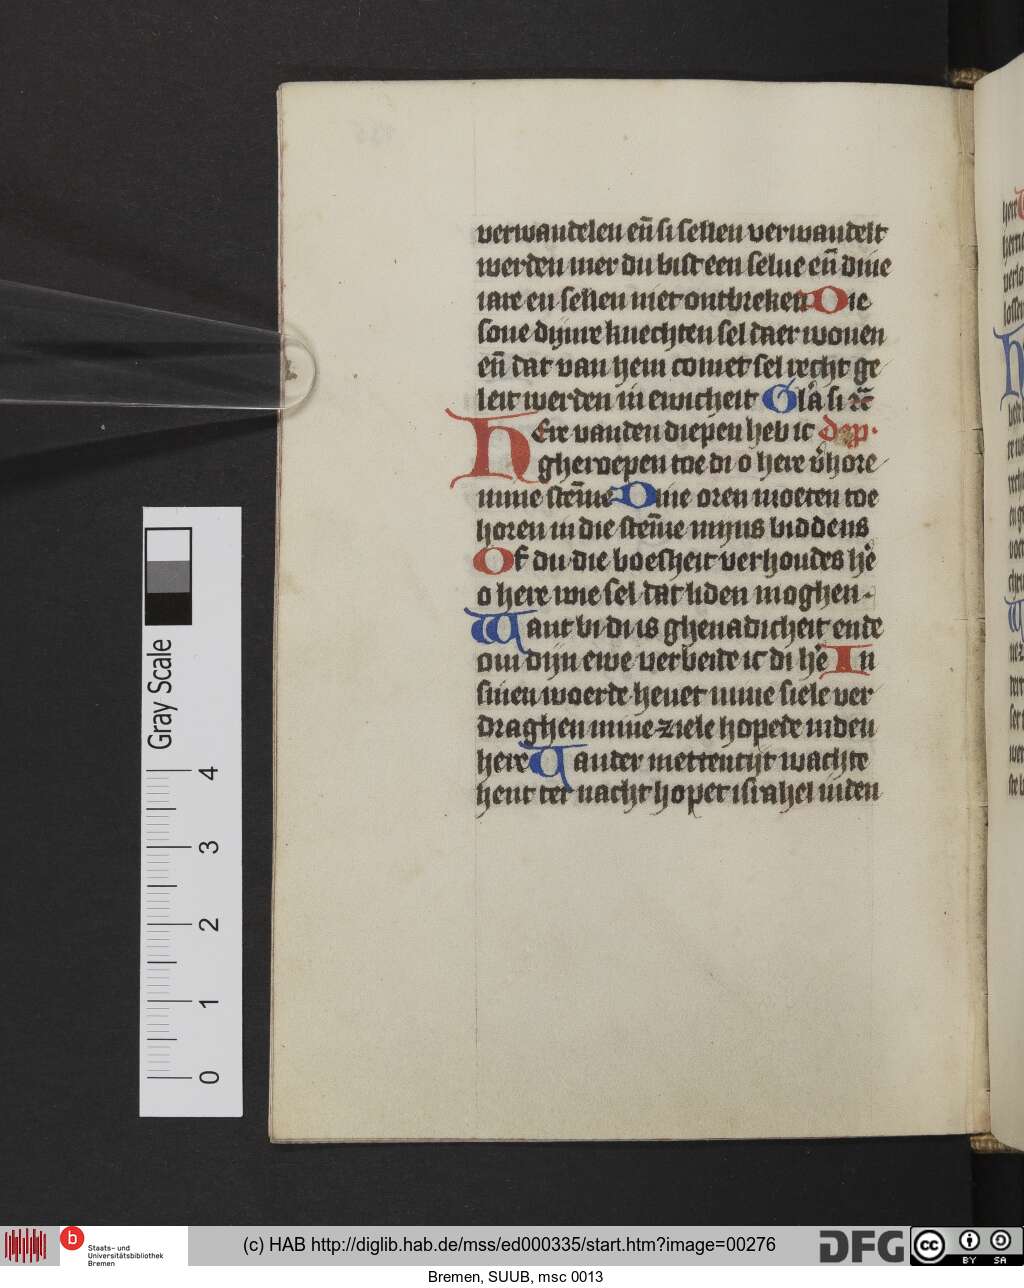 verwandelen en̄ si sellen verwandelt
werden mer du bist een selue en̄ dine
iare en sellen niet ontbreken Die
sone dijnre knechten sel daer wonen
en̄ dat van hem comet sel recht ge
leit werden in ewicheit Glā si
HEre vanden diepen heb ic dep.
gheroepen toe di o here v̄hore
mine stēme Dine oren moeten toe
horen in die stēme mijns biddens
Of du die boesheit verhoudes hē
o here wie sel dat liden moghen
Want bi di is ghenadicheit ende
om dijn ewe verbeide ic di hē In
sinen woerde heuet mine siele ver
draghen mine ziele hopede inden
here Vander mettentijt wachte
hent ter nacht hopet israhel inden
Gray Scale
4
3
2
1
0
b
Staats- und
Universitätsbibliothek
Bremen
(c) HAB http://diglib.hab.de/mss/ed000335/start.htm?image=00276
DFG
cc
BY SA
Bremen, SUUB, msc 0013